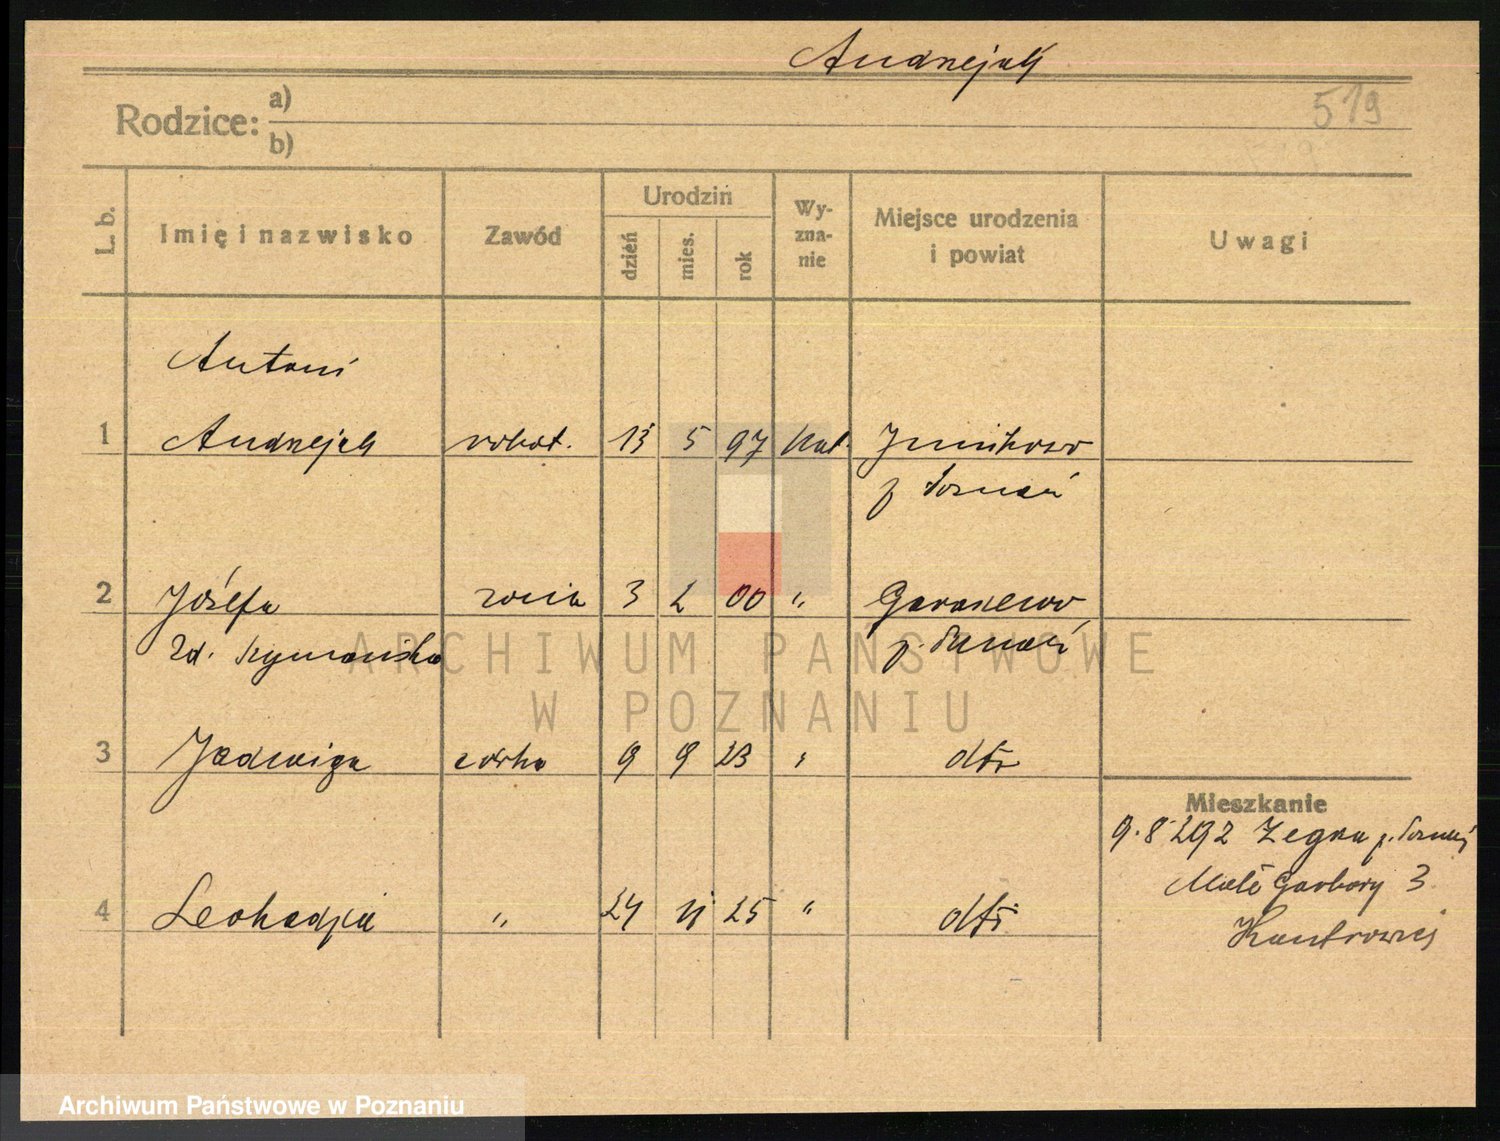 Andrzejak
519
Rodzice: a)
b)
L. b. Imię i nazwisko Zawód Urodzin dzień mies. rok Wyznanie Miejsce urodzenia i powiat Uwagi
Antoni
1 Andrzejak robot. 13 5 97 kat. Junikowo
p. Poznań
2 Józefa żona 3 2 00 " Garaszewo
zd. Szymańska p. Poznań
3 Jadwiga córka 9 9 23 " dto
Mieszkanie
9.8 292 Żegrze p. Poznań
Małe Garbary 3
4 Leokadja " 24 11 25 " dto
ARCHIWUM PAŃSTWOWE
W POZNANIU
Archiwum Państwowe w Poznaniu